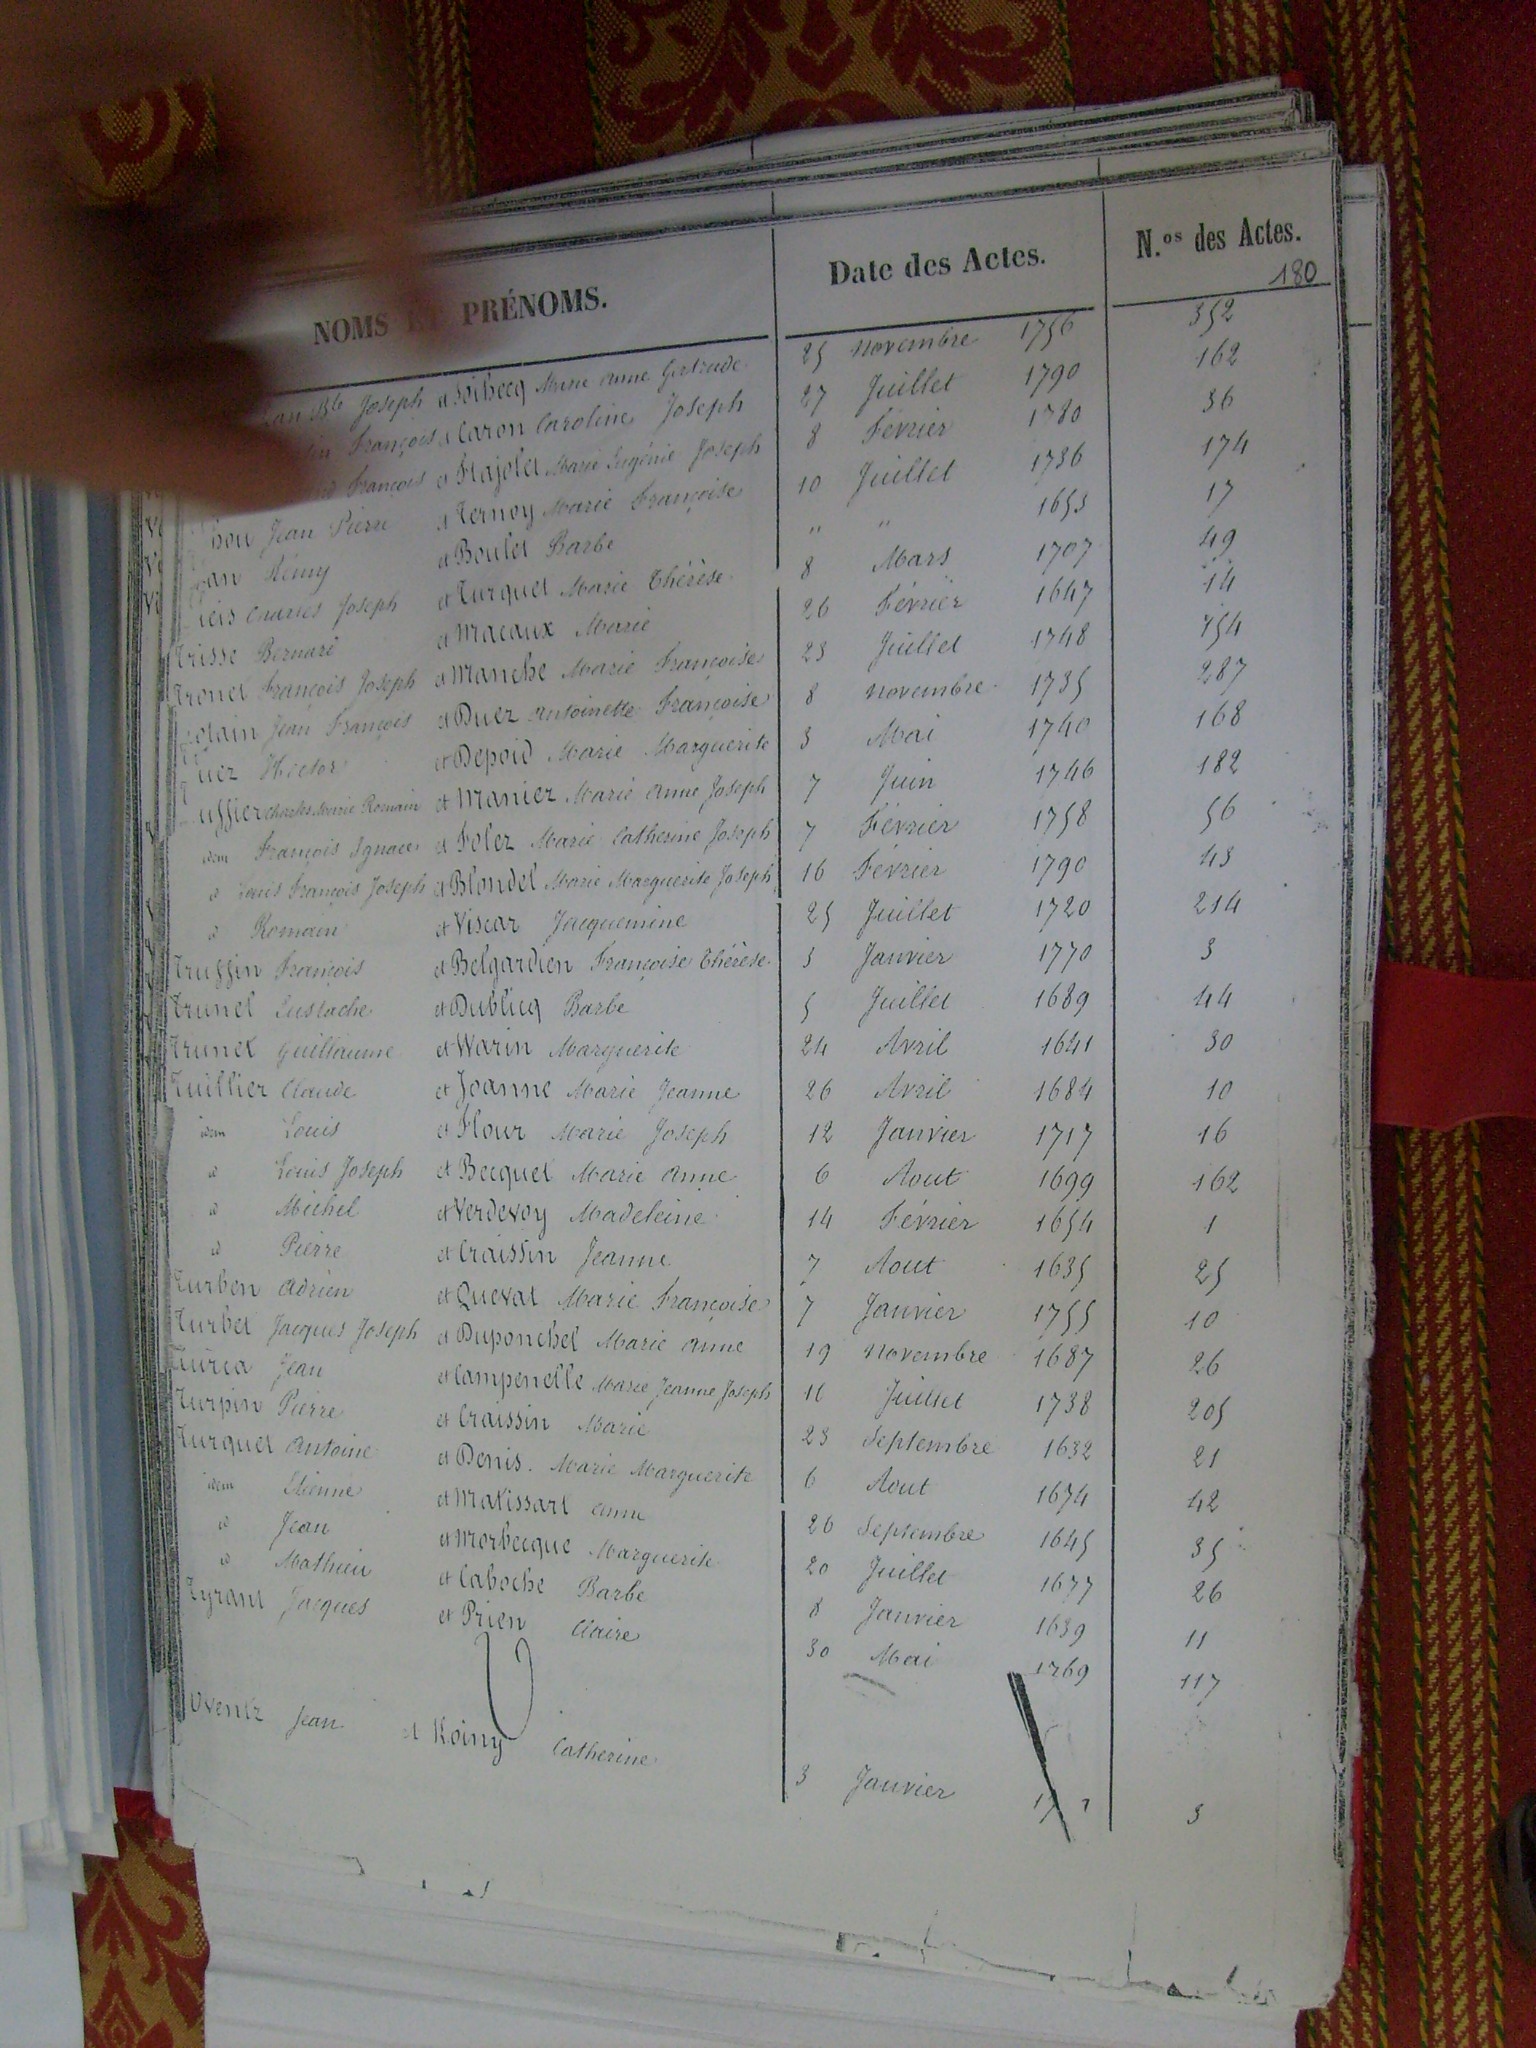 NOMS ET PRÉNOMS. Date des Actes. N.os des Actes.
180
Bte Joseph et Marie Anne Gertrude 25 Novembre 1756 352
François et Caron Caroline Joseph 27 Juillet 1790 162
François et Flajolet Marie Eugénie Joseph 8 Février 1780 36
Jean Pierre et Ternoy Marie Françoise 10 Juillet 1736 174
Rémy et Boulet Barbe " " 1653 17
Charles Joseph et Turquet Marie Thérèse 8 Mars 1707 49
Trisse Bernard et Macaux Marie 26 Février 1647 14
Tronel François Joseph et Manche Marie Françoise 23 Juillet 1748 154
Jean François et Duez Antoinette Françoise 8 Novembre 1735 287
Hector et Depoid Marie Marguerite 3 Mai 1740 168
Charles Marie Romain et Maniez Marie Anne Joseph 7 Juin 1746 182
idem François Ignace et Folez Marie Catherine Joseph 7 Février 1758 56
d Louis François Joseph et Blondel Marie Marguerite Joseph 16 Février 1790 43
d Romain et Viscar Jacquemine 25 Juillet 1720 214
Truffin François et Belgardien Françoise Thérèse 5 Janvier 1770 3
Trunel Eustache et Dublicq Barbe 5 Juillet 1689 44
Trunel Guillaume et Warin Marguerite 24 Avril 1641 30
Tuillier Claude et Joanne Marie Jeanne 26 Avril 1684 10
idem Louis et Flour Marie Joseph 12 Janvier 1717 16
d Louis Joseph et Becquet Marie Anne 6 Aout 1699 162
d Michel et Verdevoy Madeleine 14 Février 1654 1
d Pierre et Craissin Jeanne 7 Aout 1635 25
Turben Adrien et Queval Marie Françoise 7 Janvier 1755 10
Turbet Jacques Joseph et Duponchel Marie Anne 19 Novembre 1687 26
Jean et Campenelle Marie Jeanne Joseph 11 Juillet 1738 205
Turpin Pierre et Craissin Marie 23 Septembre 1632 21
Turquet Antoine et Denis Marie Marguerite 6 Aout 1674 42
idem Etienne et Matissart Anne 26 Septembre 1645 35
d Jean et Morbecque Marguerite 20 Juillet 1677 26
d Mathieu et Caboche Barbe 8 Janvier 1639 11
Tyrant Jacques et Prien Claire 30 Mai 1769 117
U
Jean et Roiny Catherine 3 Janvier 3